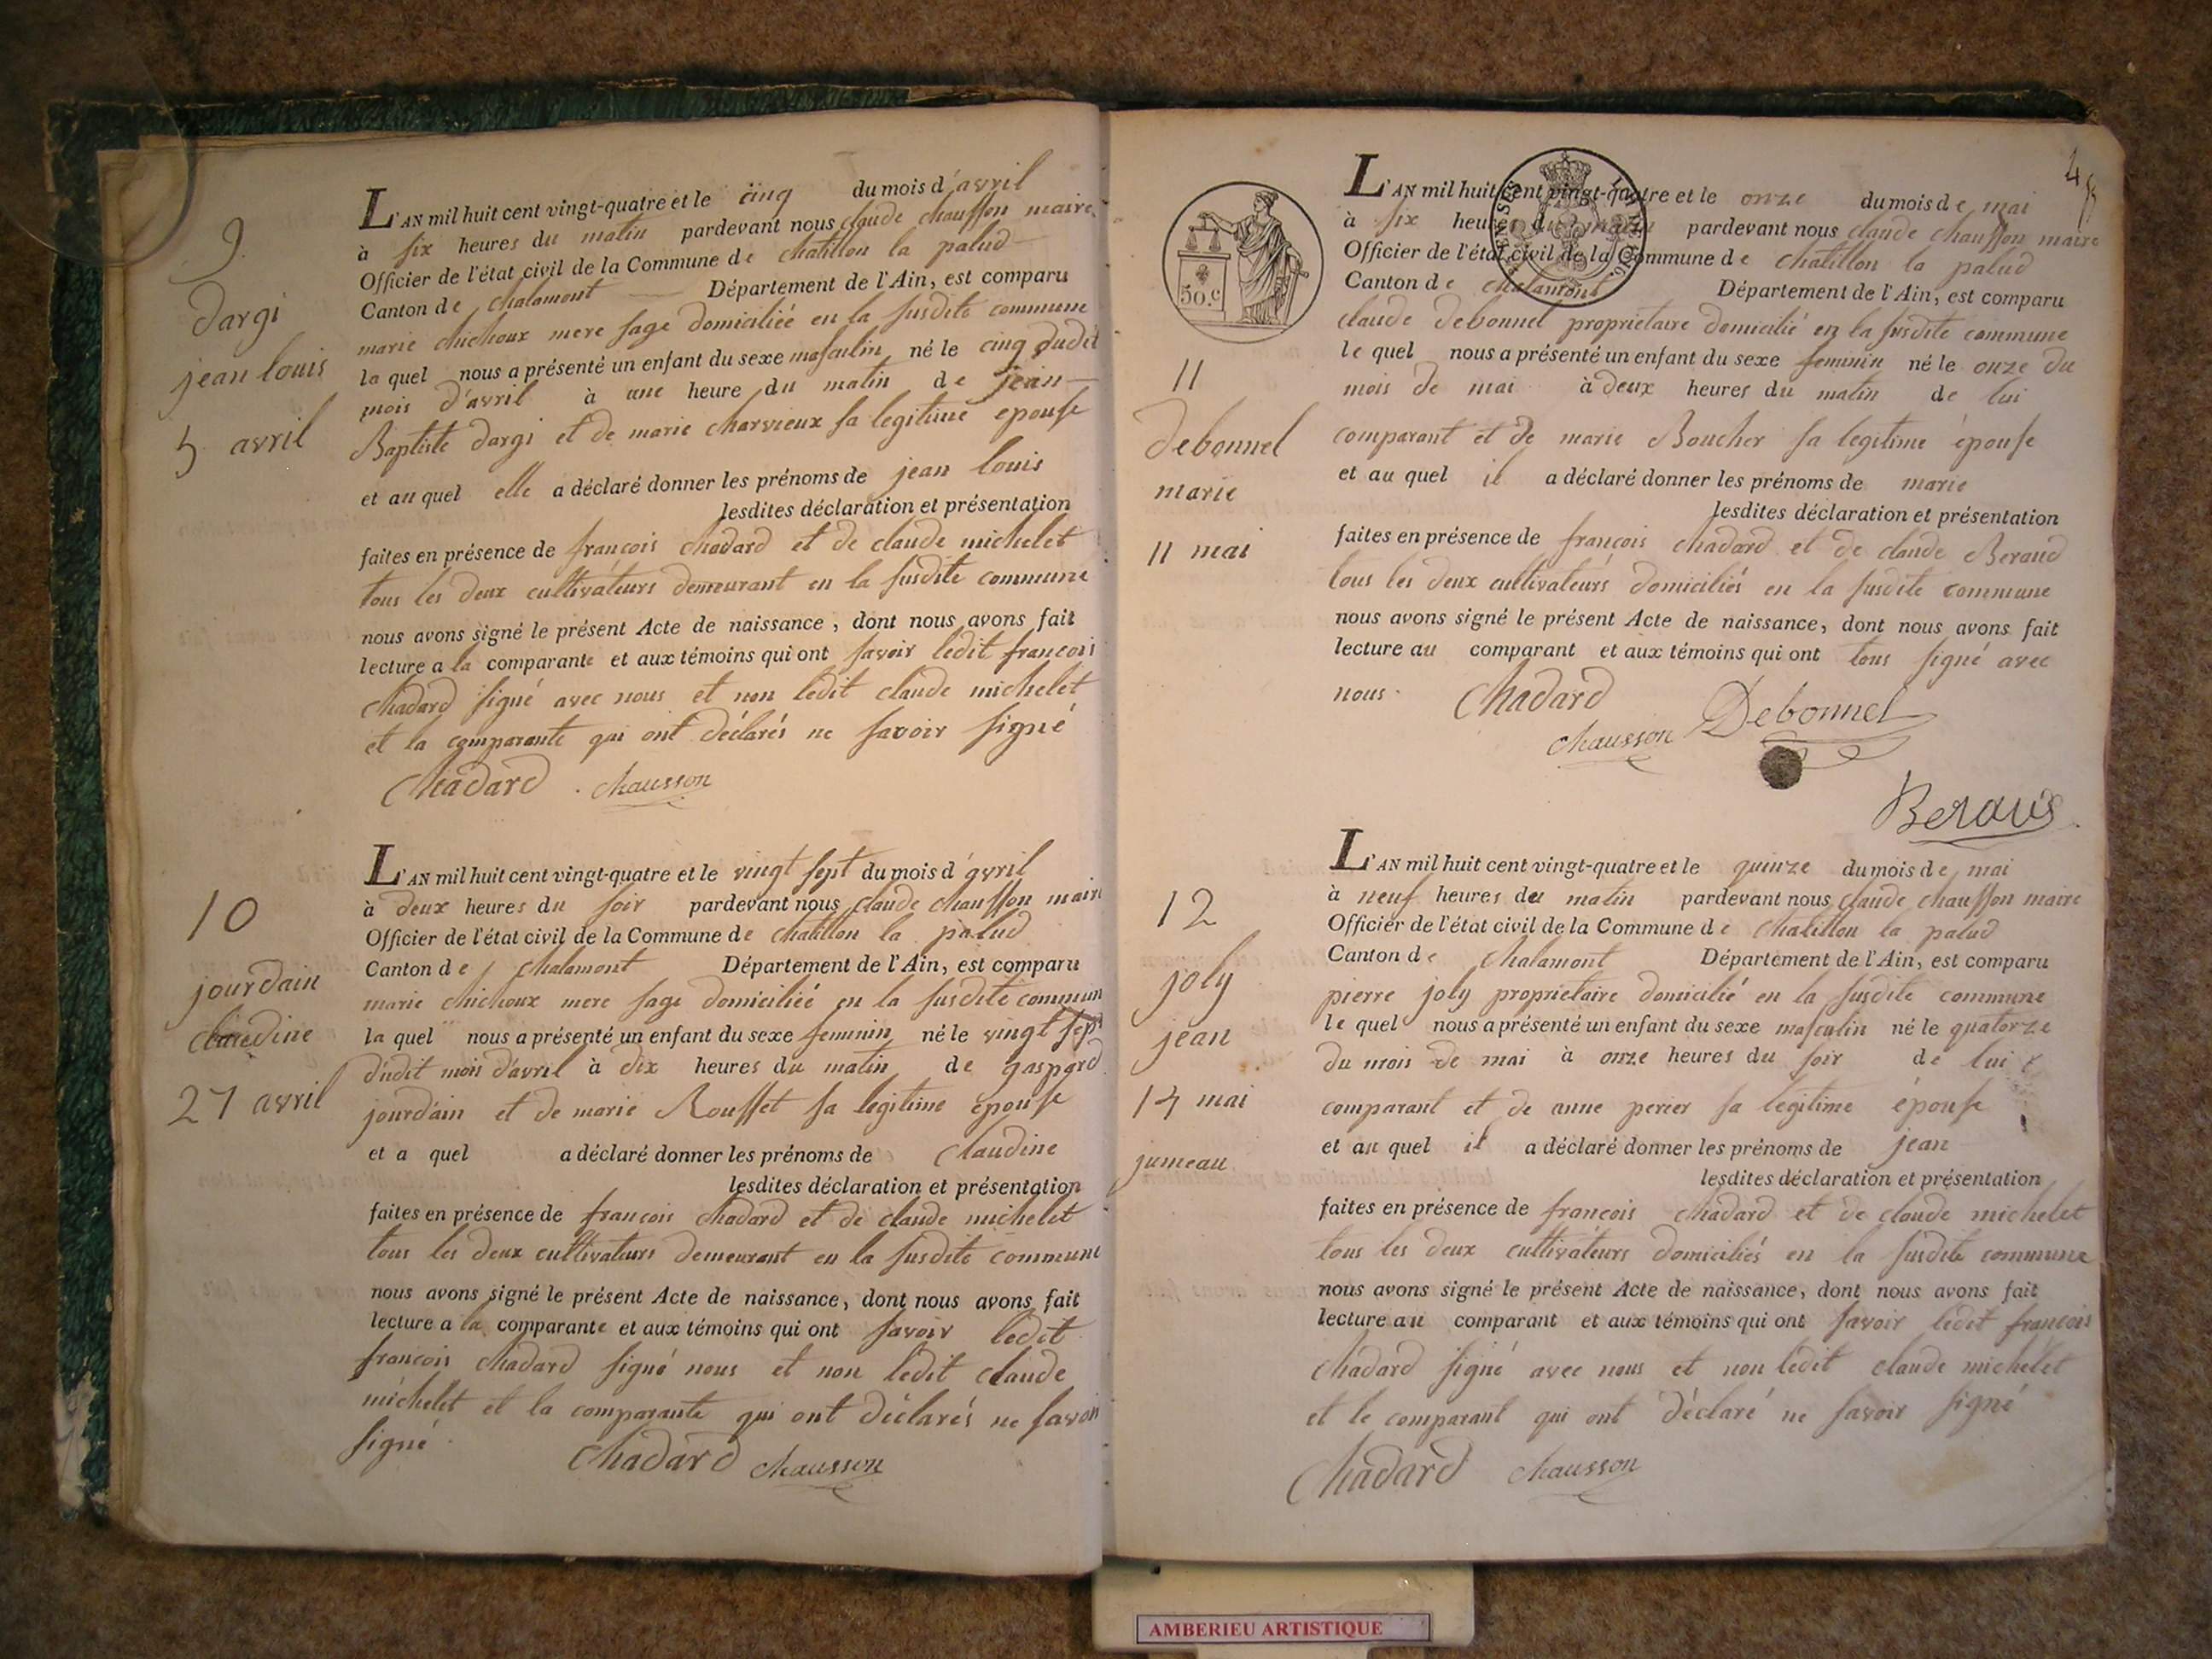 9
dargi
jean louis
5 avril
L'AN mil huit cent vingt-quatre et le cinq du mois d'avril
à six heures du matin pardevant nous claude chausson maire
Officier de l'état civil de la Commune de chatillon la palud
Canton de chalamont Département de l'Ain, est comparu
marie chichoux mere sage domiciliéé en la susdite commune
la quel nous a présenté un enfant du sexe masculin né le cinq dudit
mois d'avril à une heure du matin de jean
Baptiste dargi et de marie charvieux sa legitime epouse
et au quel elle a déclaré donner les prénoms de jean louis
lesdites déclaration et présentation
faites en présence de françois chadard et de claude michelet
tous les deux cultivateurs demeurant en la susdite commune
nous avons signé le présent Acte de naissance, dont nous avons fait
lecture a la comparante et aux témoins qui ont savoir ledit françois
chadard signé avec nous et non ledit claude michelet
et la comparante qui ont déclarés ne savoir signé
Chadard chausson
10
jourdain
claudine
27 avril
L'AN mil huit cent vingt-quatre et le vingt sept du mois d'avril
à deux heures du soir pardevant nous claude chausson maire
Officier de l'état civil de la Commune de chatillon la palud
Canton de chalamont Département de l'Ain, est comparu
marie chichoux mere sage domiciliéé en la susdite commun
la quel nous a présenté un enfant du sexe feminin né le vingt sept
dudit mois d'avril à dix heures du matin de gaspard
jourdain et de marie Rousset sa legitime épouse
et a quel a déclaré donner les prénoms de claudine
lesdites déclaration et présentation
faites en présence de françois chadard et de claude michelet
tous les deux cultivateurs demeurant en la susdite commune
nous avons signé le présent Acte de naissance, dont nous avons fait
lecture a la comparante et aux témoins qui ont savoir ledit
françois chadard signé nous et non ledit claude
michelet et la comparante qui ont déclarés ne savoir
signé
Chadard chausson
45
50.c
11
debonnel
marie
11 mai
L'AN mil huit cent vingt-quatre et le onze du mois de mai
à six heures du matin pardevant nous claude chausson maire
Officier de l'état civil de la Commune de chatillon la palud
Canton de chalamont Département de l'Ain, est comparu
claude debonnel proprietaire domicilié en la susdite commune
le quel nous a présenté un enfant du sexe feminin né le onze du
mois de mai à deux heures du matin de lui
comparant et de marie Boucher sa legitime épouse
et au quel il a déclaré donner les prénoms de marie
lesdites déclaration et présentation
faites en présence de françois chadard et de claude Beraud
tous les deux cultivateurs domiciliés en la susdite commune
nous avons signé le présent Acte de naissance, dont nous avons fait
lecture au comparant et aux témoins qui ont tous signé avec
nous. Chadard
chausson Debonnel
Beraud
12
joly
jean
14 mai
jumeau
L'AN mil huit cent vingt-quatre et le quinze du mois de mai
à neuf heures du matin pardevant nous claude chausson maire
Officier de l'état civil de la Commune de chatillon la palud
Canton de chalamont Département de l'Ain, est comparu
pierre joly proprietaire domicilié en la susdite commune
le quel nous a présenté un enfant du sexe masculin né le quatorze
du mois de mai à onze heures du soir de lui
comparant et de anne perier sa legitime épouse
et au quel il a déclaré donner les prénoms de jean
lesdites déclaration et présentation
faites en présence de françois chadard et de claude michelet
tous les deux cultivateurs domiciliés en la susdite commune
nous avons signé le présent Acte de naissance, dont nous avons fait
lecture au comparant et aux témoins qui ont savoir ledit françois
chadard signé avec nous et non ledit claude michelet
et le comparant qui ont déclaré ne savoir signé
Chadard chausson
AMBERIEU ARTISTIQUE